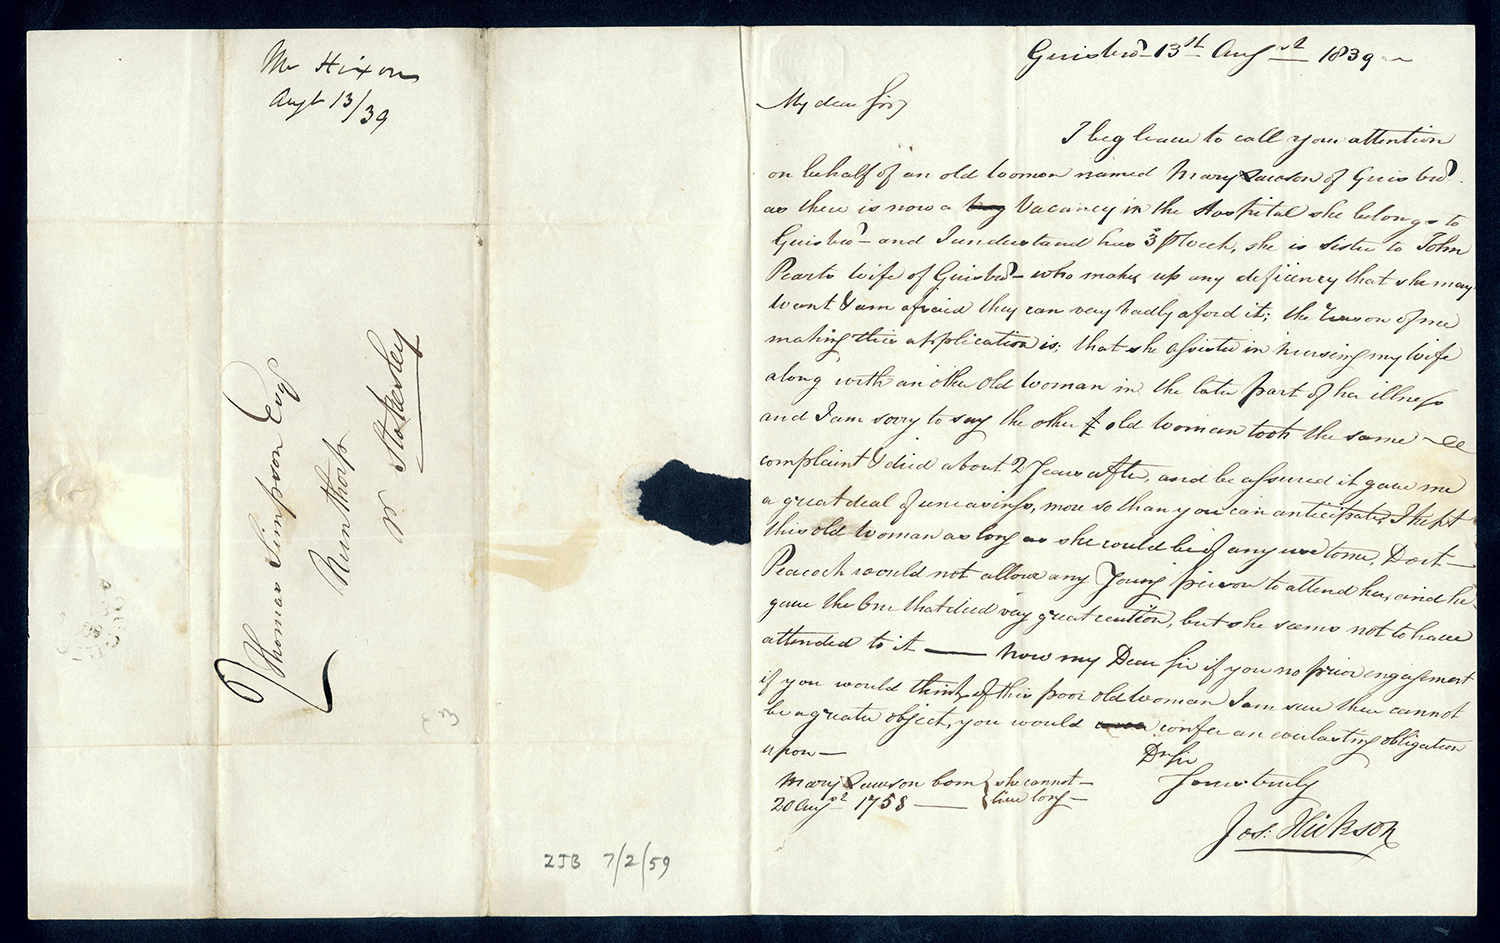 Mr Hixon
Augt 13/39
Thomas Simpson Esq
Nunthorp
nr Stokesley
ZJB 7/2/59
Guisbro' 13st Augst 1839
My dear Sir,
I beg leave to call your attention
on behalf of an old woman named Mary Lawson of Guisbro'.
as there is now a Vacancy in the Hospital she belongs to
Guisbro' - and I understand has 3s p Week, she is Sister to John
Pearts wife of Guisbro' - who makes up any deficency that she may
want & am afraid they can very badly aford it; the reason of me
making this application is; that she assisted in nursing my wife
along with an other old woman in the later part of her illness
and I am sorry to say the other old woman took the same
complaint & died about 2 Years after, and be assured it gave me
a great deal of uneasiness, more so than you can anticipate, I kept
this old woman as long as she could be of any use to me, Doct
Peacock would not allow any Young person to attend her, and he
gave the One that died very great caution, but she seems not to have
attended to it — Now my Dear Sir if you no prior engagement
if you would think of this poor old woman I am sure there cannot
be a greater object, you would confer an everlasting obligation
upon —
Dr Sir
Yours truly
Jos: Hickson
Mary Lawson born { she cannot -
20 Augst 1758 — { live long -